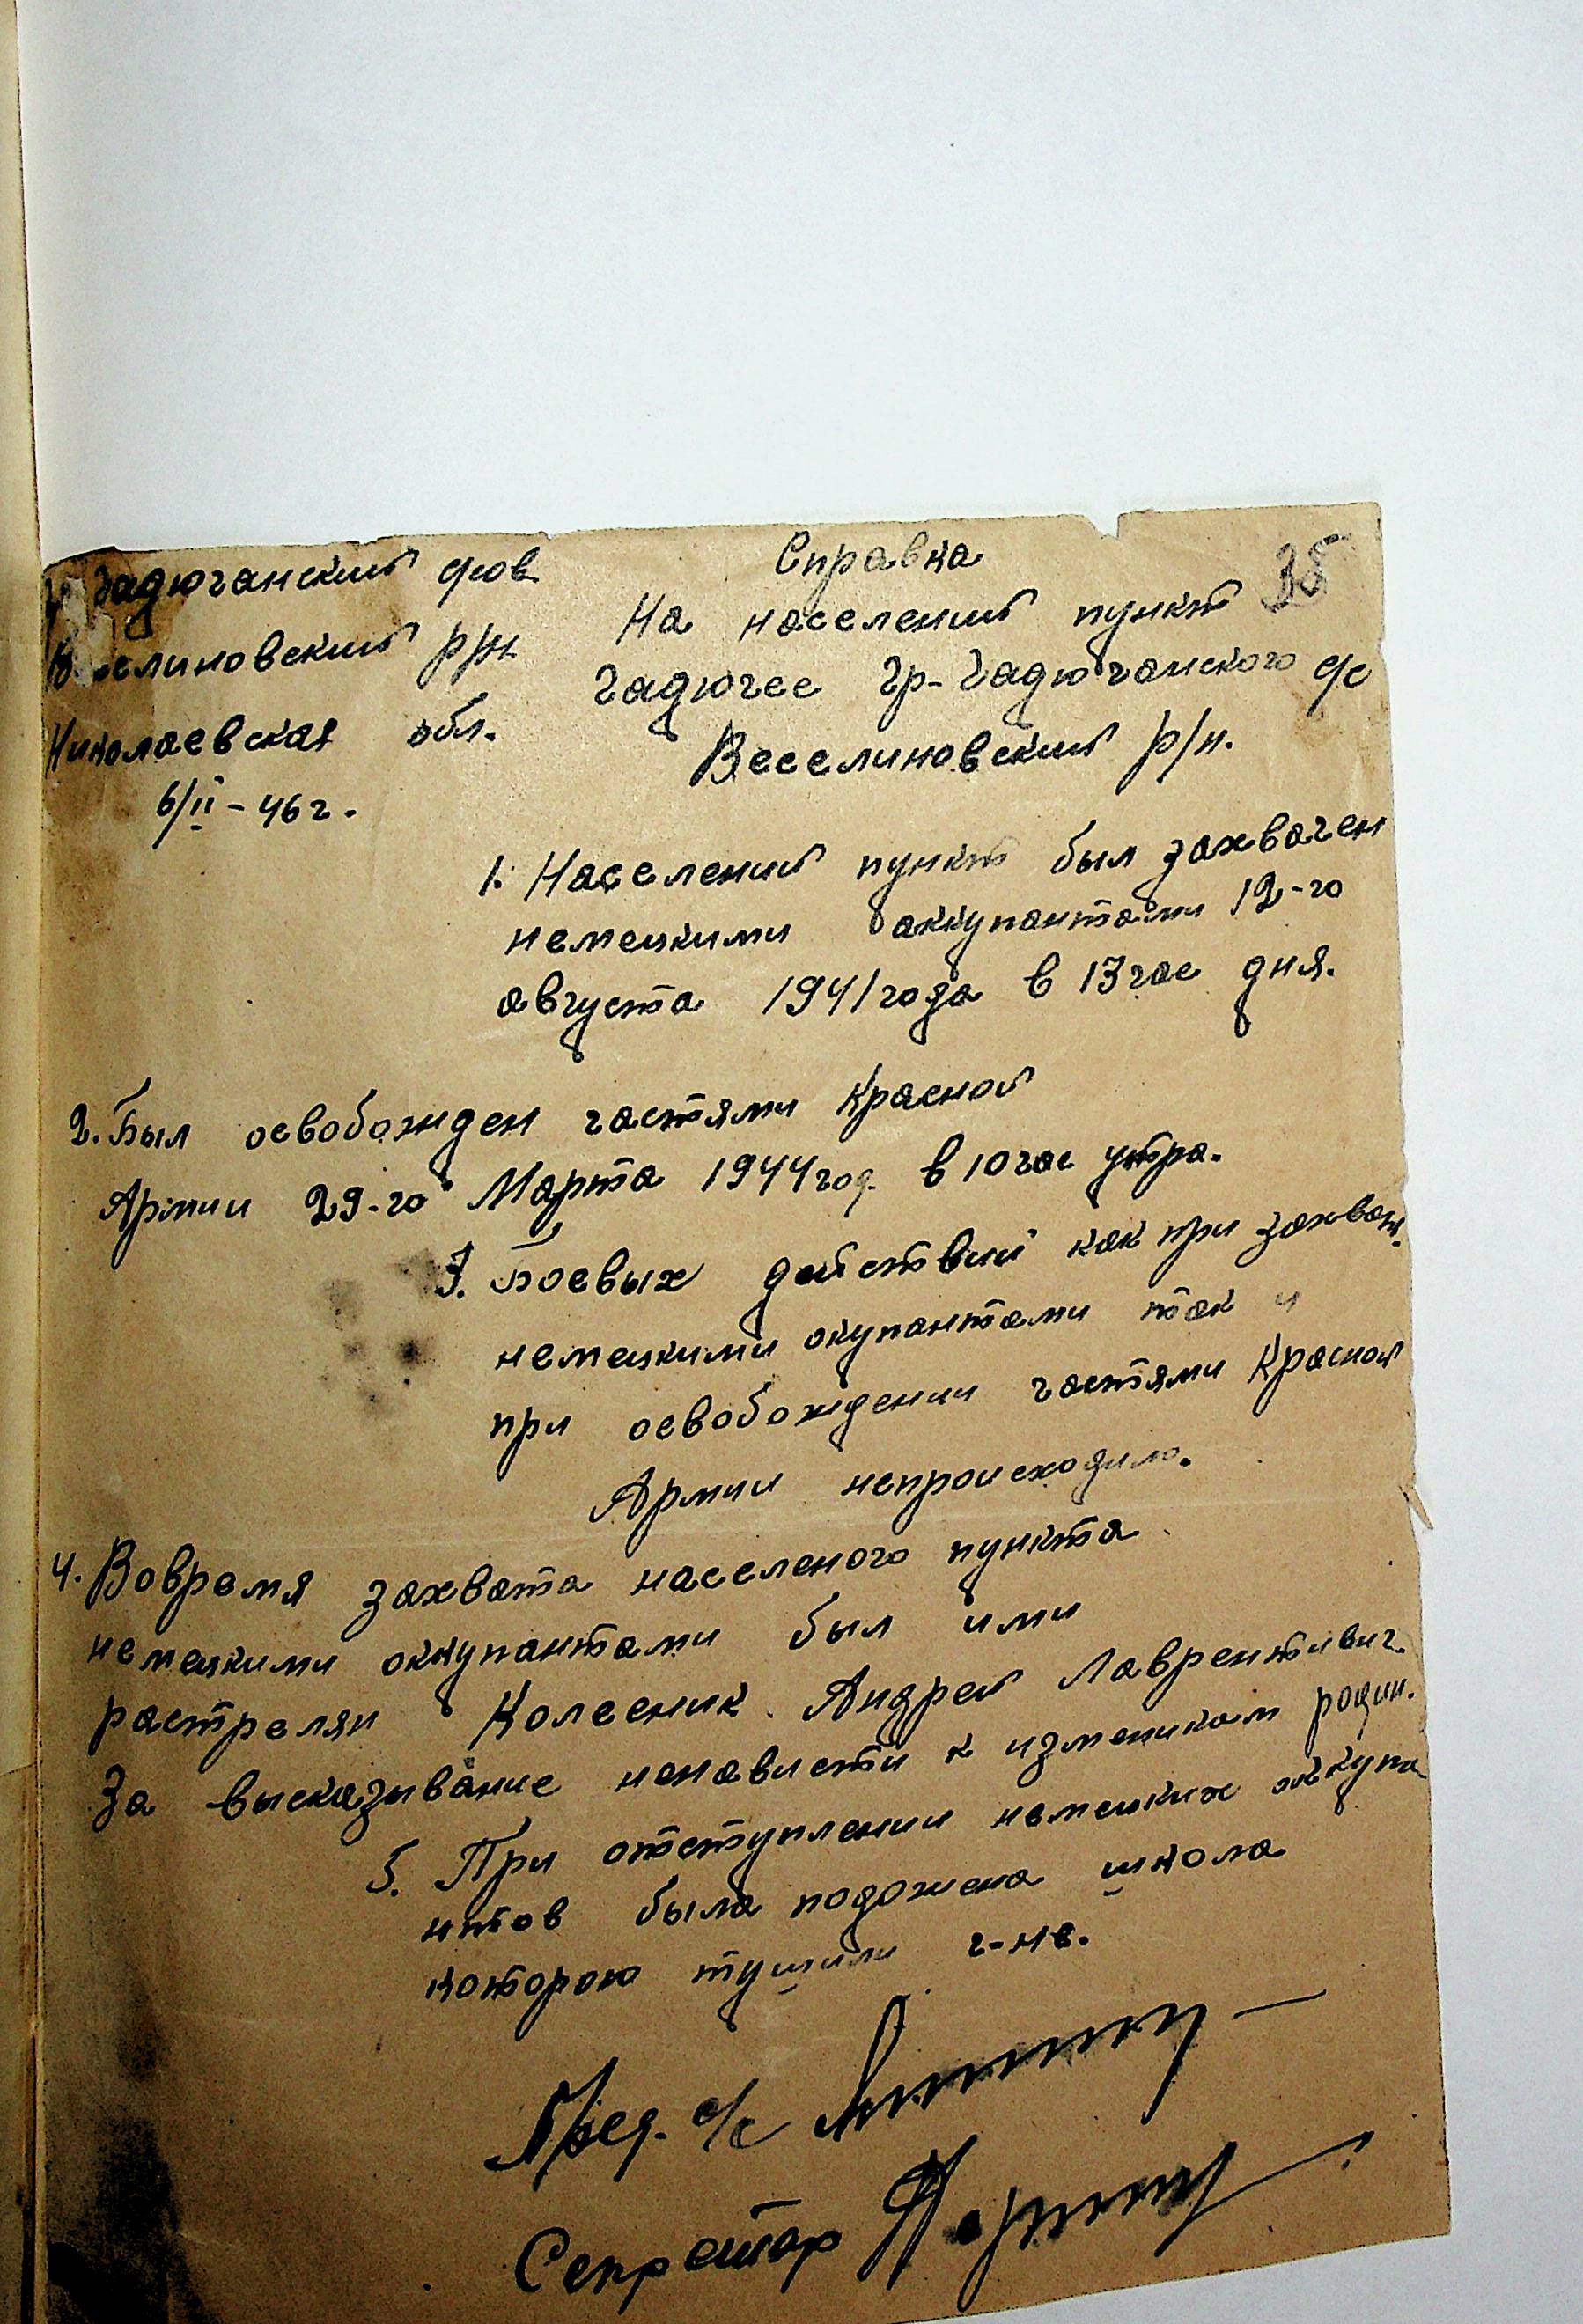 Справка
35
Гадючанский с/сов
Веселиновский р/н
Николаевская обл.
6/II – 46 г.
На населений пункт
Гадючее Гр-Гадючанского с/с
Веселиновский р/н.
1. Населений пункт был захвачен
немецкими аккупантами 12-го
августа 1941 года в 13 час дня.
2. Был освобожден частями Красной
Армии 29-го Марта 1944 год. в 10 час утра.
3. Боевых действий как при захват.
немецкими окупантами так и
при освобождении частями Красной
Армии непроисходило.
4. Вовремя захвата населеного пункта
немецкими оккупантами был ими
растрелян Колесник Андрей Лаврентивич
За высказывание ненависти к изменикам родин.
5. При отступлении немецких оккупа
нтов была подожена школа
которою тушили г-не.
Пред. с/с
Секретар